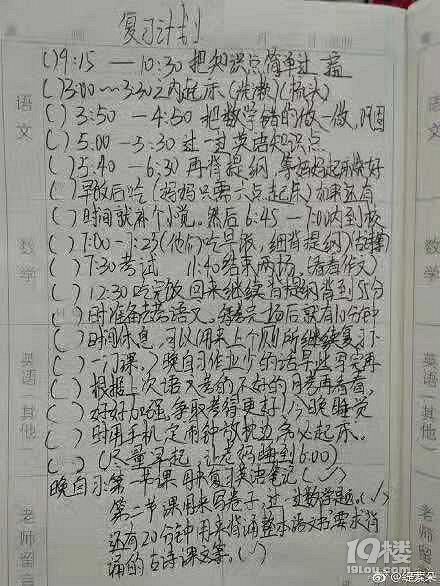 复习计划
( )9:15 — 10:30 把知识点简单过一遍
( )3:00～3:30之内起床(洗漱)(梳头)
( ) 3:50 — 4:50 把数学错的做一做,巩固
( ) 5:00 — 5:30 过一遍英语知识点
( ) 5:40 — 6:30 再背提纲,等妈妈起床烧好
( ) 早饭后吃(妈妈只要六点起床)如果还有
( ) 时间就补个小觉。然后6:45 — 7:00达到校
( ) 7:00 — 7:25(他们吃早饭,细背提纲)
( ) 7:30 考试 11:40结束两场。(看看作文)
( ) 12:30吃完饭回来继续背提纲背到55分
( ) 时准备去考语文。每考完一场后就有10分钟
( ) 时间休息,可以用来上个厕所继续复习下
( ) 一门课。)晚自习作业少的话早些写完再
( ) 根据上次语文考的不好的月考再看看,
( ) 好好加强,争取考得更好!今晚睡觉
( ) 时用手机定闹钟放枕边务必起床。
( ) (尽量早起,让老妈睡到6:00)
晚自习第一节课用来复习英语笔记(✓)
第二节课用来写卷子,过一过数学题。(✓)
还有20分钟用来背诵整本语文书要求背
诵的古诗课文等。(✓)
语文
数学
英语(其他)
(其他)
老师留言
老师留言
19楼
19lou.com